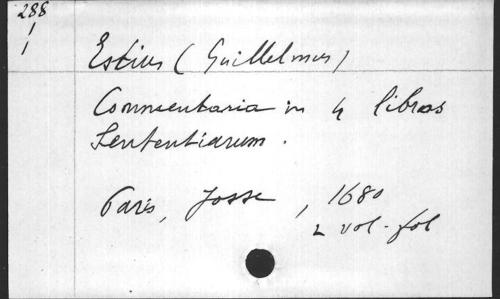 288
1
1
Estius (Guillelmus)
Commentaria in 4 libros
Sententiarum.
Paris, Josse, 1680
2 vol. fol